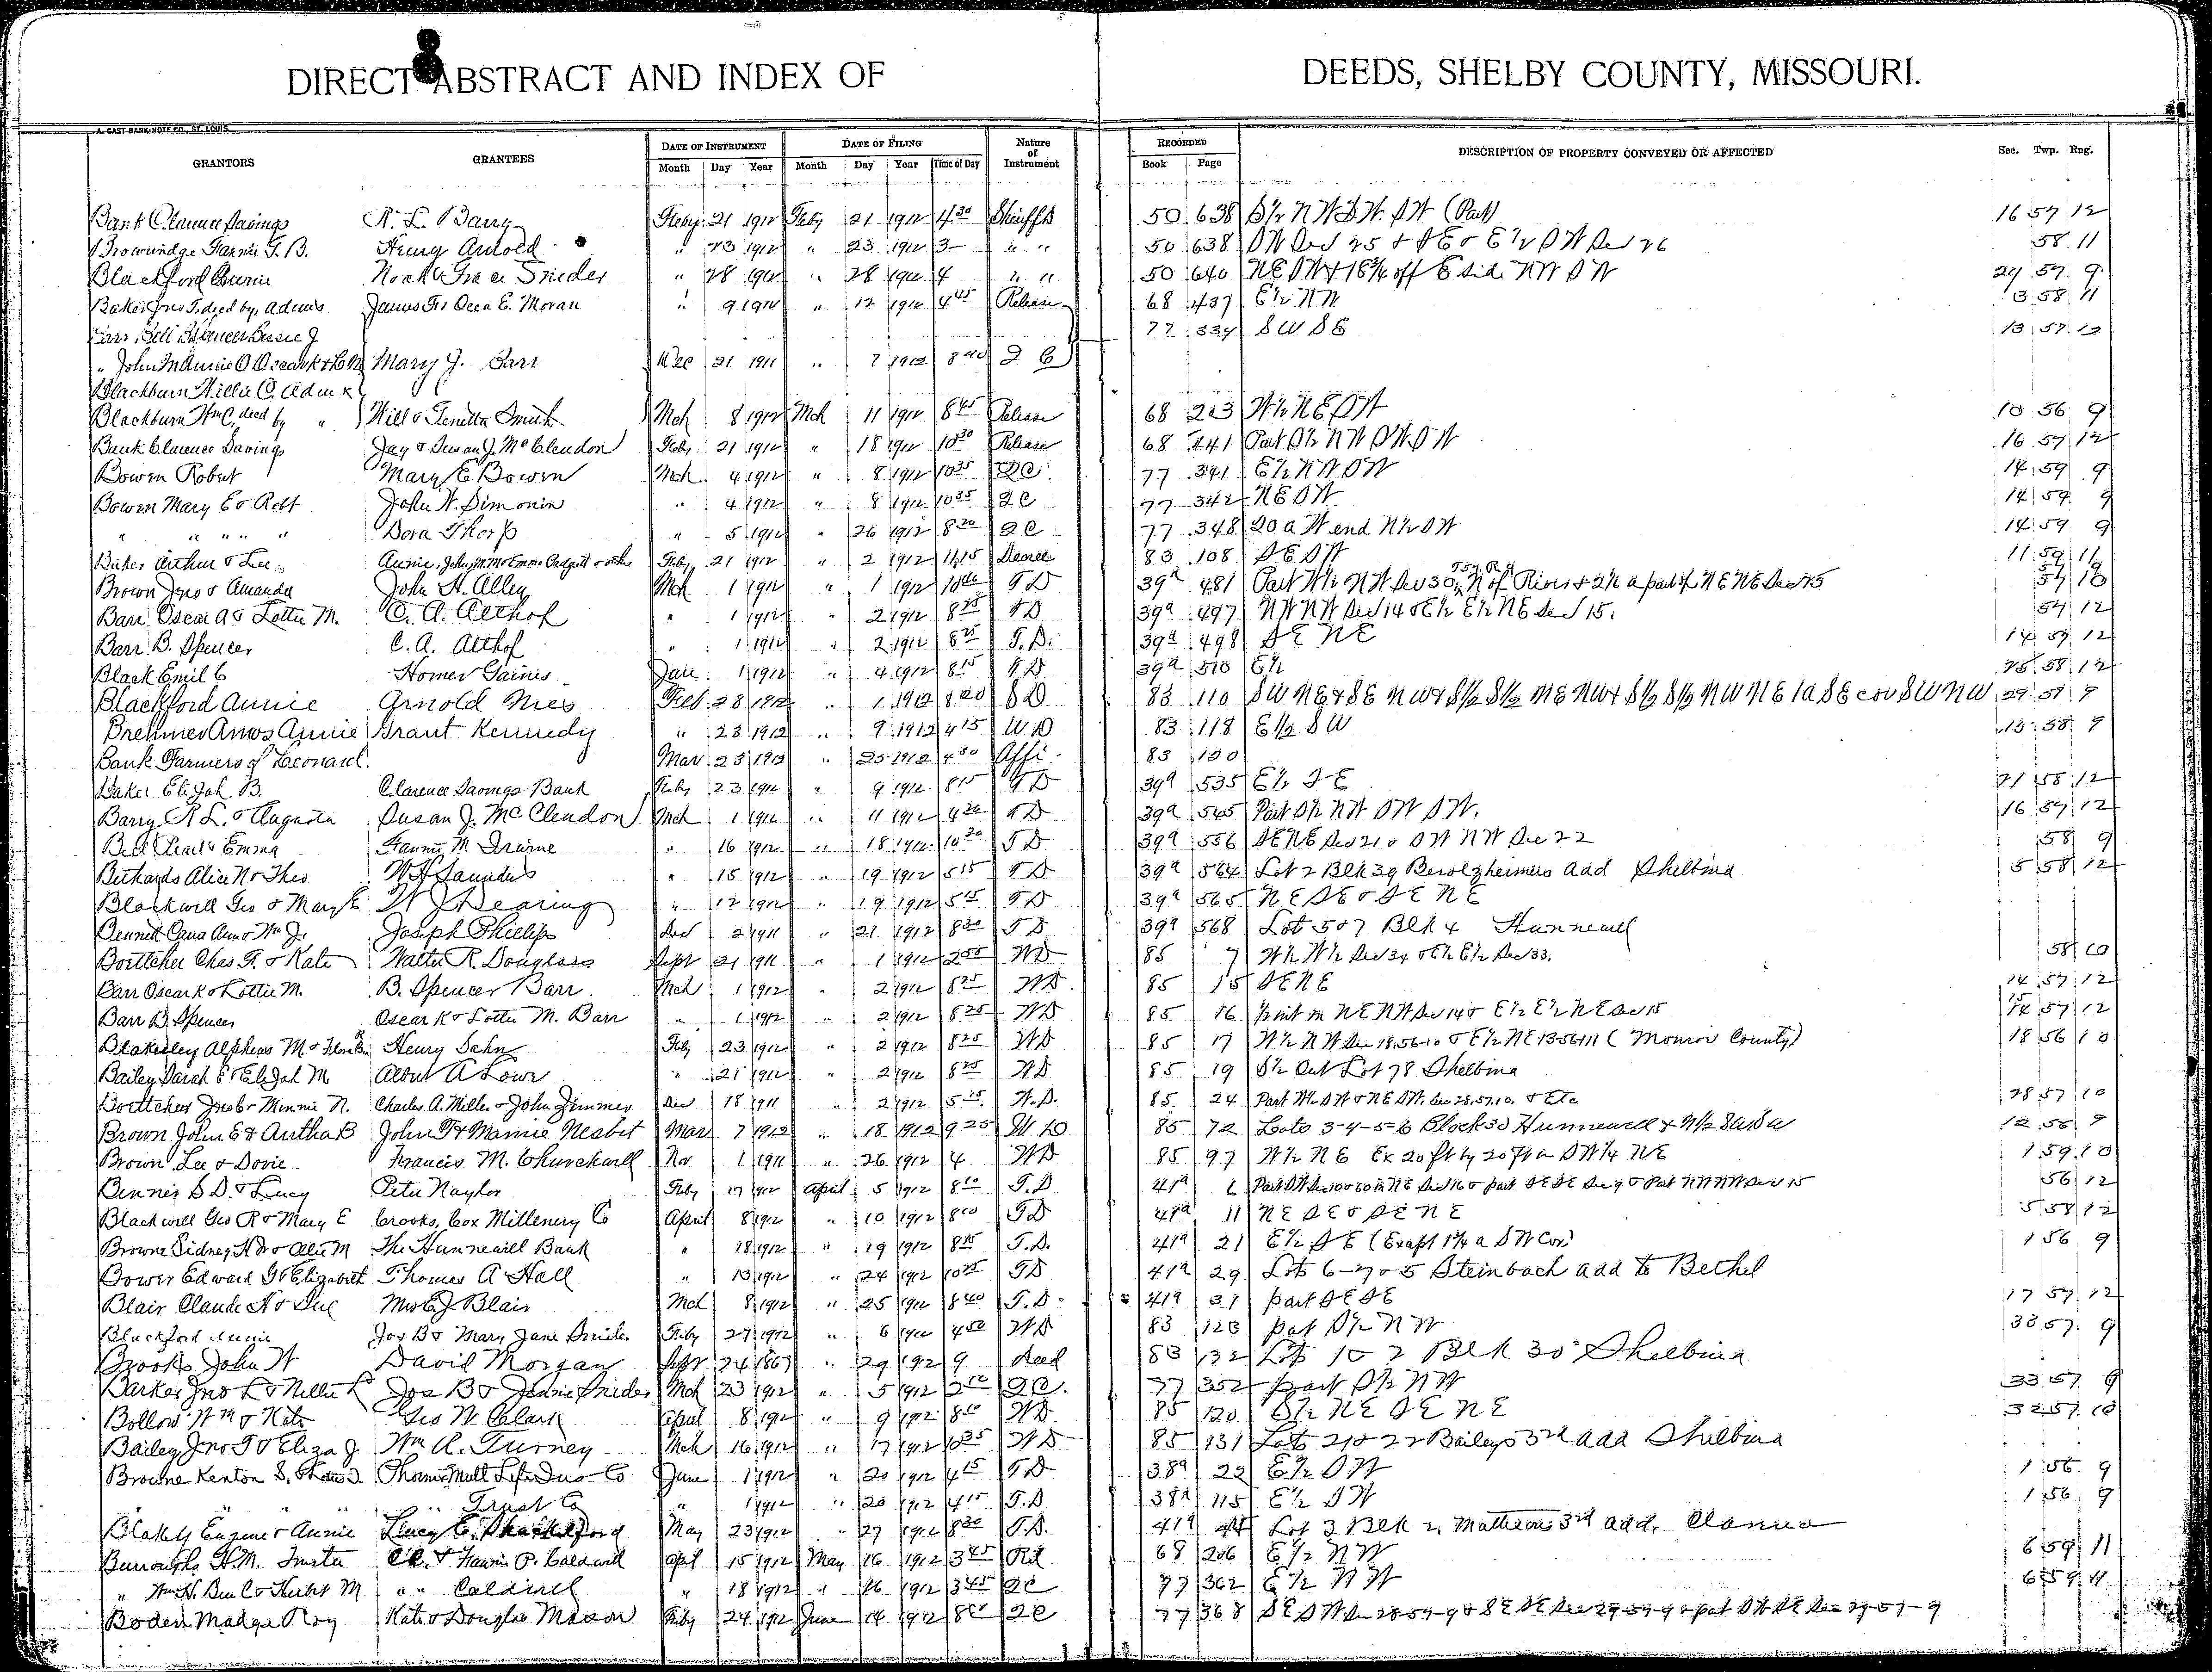 DIRECT ABSTRACT AND INDEX OF DEEDS, SHELBY COUNTY, MISSOURI.
A. GAST BANK NOTE CO., ST. LOUIS.
GRANTORS GRANTEES DATE OF INSTRUMENT DATE OF FILING Nature of Instrument RECORDED DESCRIPTION OF PROPERTY CONVEYED OR AFFECTED Sec. Twp. Rng.
Month Day Year Month Day Year Time of Day Book Page
Bank Clarence Savings R. L. Barry Feby 21 1912 Feby 21 1912 4 30 Sheriffs 50 638 S½ NW SW SW (Part) 16 57 12
Brownridge Fannie G. B. Henry Arnold " 23 1912 " 23 1912 3 " " 50 638 58 11
Blackford Annie Noah & Grace Snider " 28 1912 " 28 1912 4 " " 50 640 off E side NW SW 29 57 9
Baker Jno T. decd by Admrs " 9 1912 " 12 1912 4 45 Release 68 437 E½ NW 3 58 11
77 334 SW SE 13 57 12
Mary J. Barr Dec 21 1911 " 7 1912 8 40 2 C
Blackburn Willie C. Admx
Blackburn Wm C. decd by " Will & Smith Mch 8 1912 Mch 11 1912 8 45 Release 68 213 W½ NE SW 10 56 9
Bank Clarence Savings Jay & Susan J. McClendon Feby 21 1912 " 18 1912 10 30 Release 68 441 Part S½ NW SW SW 16 57 12
Bowen Robert Mary E. Bowen Mch 4 1912 " 8 1912 10 35 2C 77 341 E½ NW SW 14 59 9
Bowen Mary E & Robt John W. Simonin " 4 1912 " 8 1912 10 35 2C 77 342 NE SW 14 59 9
" " " " Dora Thorp " 5 1912 " 26 1912 8 20 2C 77 348 20 a W end N½ SW 14 59 9
Feby 21 1912 " 2 1912 11 15 Decree 83 108 SE SW 11 59 11
Brown Jno & Amanda John H. Alley Mch 1 1912 " 1 1912 TD 39a 481 Part W½ NW Sec 30 N of River & 2½ a part of NE NE Sec 25 57 10
Barr Oscar A & Lottie M. C. A. Althof " 1 1912 " 2 1912 8 25 TD 39a 497 NW NW Sec 14 & E½ E½ NE Sec 15. 57 12
Barr B. Spencer C. A. Althof " 1 1912 " 2 1912 8 25 T.D. 39a 498 SE NE 14 57 12
Black Emil C Homer Gaines Jan 1 1912 " 4 1912 8 15 TD 39a 510 E½ 25 58 12
Blackford Annie Arnold Nies Feb 28 1912 " 1 1912 8 20 SD 83 110 SW NE & SE NW & S½ S½ NE NW & S½ S½ NW NE 1a SE cor SW NW 29 57 9
Brehmer Amos Annie Grant Kennedy " 23 1912 " 9 1912 4 15 WD 83 118 E½ SW 13 58 9
Bank Farmers of Leonard. Mar 23 1912 " 25 1912 4 30 Affi 83 120
Baker Elijah B. Clarence Savings Bank Feby 23 1912 " 9 1912 8 15 TD 39a 535 E½ SE 21 58 12
Barry R L. & Augusta Susan J. McClendon Mch 1 1912 " 11 1912 4 20 TD 39a 545 Part S½ NW SW SW. 16 57 12
Bell & Emma Fannie M Irwine " 16 1912 " 18 1912 10 30 TD 39a 556 SE NE Sec 21 & SW NW Sec 22 58 9
Bethards Alice N & Theo W H Saunders " 15 1912 " 19 1912 5 15 TD 39a 564 Lot 2 Blk 39 Berolzheimers add Shelbina 5 58 12
Blackwell Geo & Mary E W J Dearing " 12 1912 " 19 1912 5 15 TD 39a 565 NE SE & SE NE
Bennett Cana Ann & Wm J. Joseph Phillips Dec 2 1911 " 21 1912 8 30 TD 39a 568 Lot 5 & 7 Blk 4 Hunnewell
Boettcher Chas F. & Kate Walter R. Douglass Sept 21 1911 " 1 1912 2 55 WD 85 7 W½ W½ Sec 34 & E½ E½ Sec 33. 58 10
Barr Oscar K & Lottie M. B. Spencer Barr Mch 1 1912 " 2 1912 8 25 WD. 85 15 SE NE 14 57 12
Barr B. Spencer Oscar K & Lottie M. Barr " 1 1912 " 2 1912 8 25 WD 85 16 ½ int in NE NW Sec 14 & E½ E½ NE Sec 15 14 57 12
Blakesley Alpheus M & Henry Dahn Feby 23 1912 " 2 1912 8 25 WD 85 17 W½ NW Sec 18,56-10 & E½ NE 13-56-11 (Monroe County) 18 56 10
Bailey Sarah E & Elijah M Albert A Lowe " 21 1912 " 2 1912 8 25 WD 85 19 S½ Out Lot 78 Shelbina
Boettcher Jacob & Minnie N. Charles A. Miller & John Zimmer Dec 18 1911 " 2 1912 5 25 W.D. 85 24 Part W½ SW & NE SW. Sec 28,57,10. & Etc 28 57 10
Brown John E & Artha B John T & Mamie Nesbit Mar 7 1912 " 18 1912 9 25 WD 85 72 Lots 3-4-5-6 Block 30 Hunnewell & N½ 12 56 9
Brown Lee & Dovie Francis M. Churchwell Nov 1 1911 " 26 1912 4 WD 85 97 W½ NE Ex 20 ft by 20 ft in SW¼ NE 1 59 10
Benner S D. & Lucy Peter Naylor Feby 17 1912 April 5 1912 8 10 T.D 41a 6 56 12
Blackwell Geo R & Mary E Crooks, Cox Millenery Co April 8 1912 " 10 1912 8 10 TD 41a 11 NE SE & SE NE 5 58 12
Browne Sidney H Dr & Alice M The Hunnewell Bank " 18 1912 " 19 1912 8 15 T.D. 41a 21 E½ SE (Except 1¼ a SW Cor) 1 56 9
Bower Edward G & Elizabeth Thomas A Hall " 13 1912 " 24 1912 10 25 TD 41a 29 Lots 6-7 & 5 Steinbach add to Bethel
Blair Claude H & Sue Mrs E J Blair Mch 8 1912 " 25 1912 8 40 T.D. 41a 31 part SE SE 17 57 12
Blackford Annie Jos B & Mary Jane Snider Feby 27 1912 " 6 1912 4 50 WD 83 123 part S½ NW 33 57 9
Brooks John W David Morgan Sept 24 1867 " 29 1912 9 deed 83 132 Lots 1 & 2 Blk 30 Shelbina
Barker Jno L & Nellie L Jos B & Jennie Snider Mch 23 1912 " 5 1912 2 10 QC. 77 352 part S½ NW 33 57 9
Bollow Wm & Kate Geo W Clark April 8 1912 " 9 1912 8 10 WD 85 120 S½ NE SE NE 32 57 10
Bailey Jno T & Eliza J Wm A. Turney Mch 16 1912 " 17 1912 10 35 WD 85 131 Lots 21 & 22 Baileys 3rd add Shelbina
Browne Kenton S. June 1 1912 " 20 1912 4 15 TD 38a 22 E½ SW 1 56 9
" " " " Trust Co " 1 1912 " 20 1912 4 15 T.D 38a 115 E½ SW 1 56 9
Blakely Eugene & Annie Lucy E. Shackelford May 23 1912 " 27 1912 8 30 T.D. 41a 44 Lot 3 Blk 2, Mathews 3rd add. Clarence
Burroughs H.M. Trustee C.E. & Fannie P. Caldwell Apl 15 1912 May 16 1912 3 45 Rel 68 206 E½ NW 6 59 11
" Wm H. Ben C & Herbt M " " Caldwell " 18 1912 " 16 1912 3 45 QC 77 362 E½ NW 6 59 11
Boden Madge Roy Kate & Douglas Mason Feby 24 1912 June 14 1912 8 10 QC 77 368 SE SW Sec 28-57-9 & SE SE Sec 29-57-9 & part SW SE Sec 29-57-9